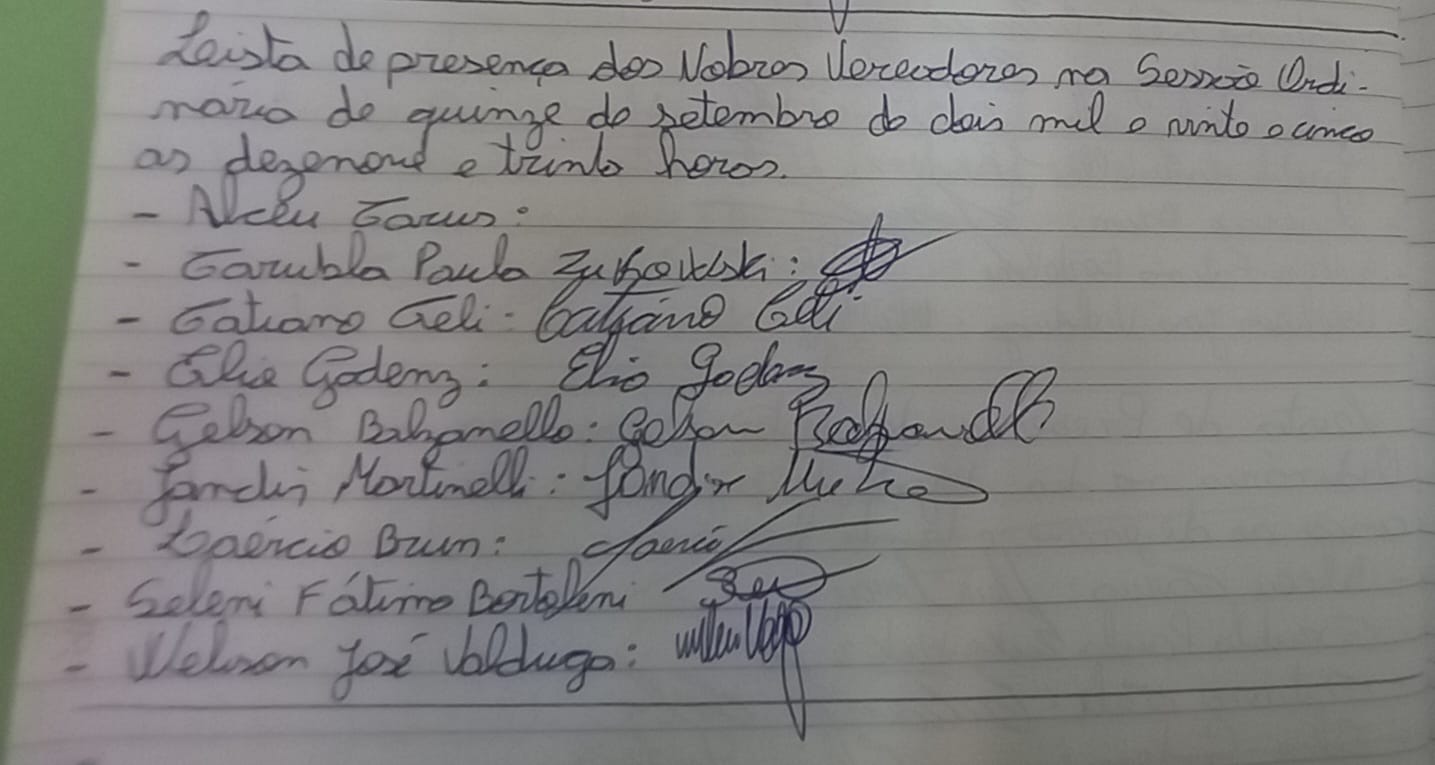 Leista de presença dos Nobres Vereadores na Sessão Ordi-
nária de quinze de setembro de dois mil e vinte e cinco
as dezenove e trinta horas.
- Alceu Tarus:
- Paula Zukowski:
- Catiano Geli: Catiano Geli
- Elio Godenz: Elio Godenz
- Gelson Balzanello: Gelson Balzanello
- Jandir Martinelli: Jandir
- Laércio Brun: Laercio
- Seleni Fátima Bortoleni
- Welson José Valduga: